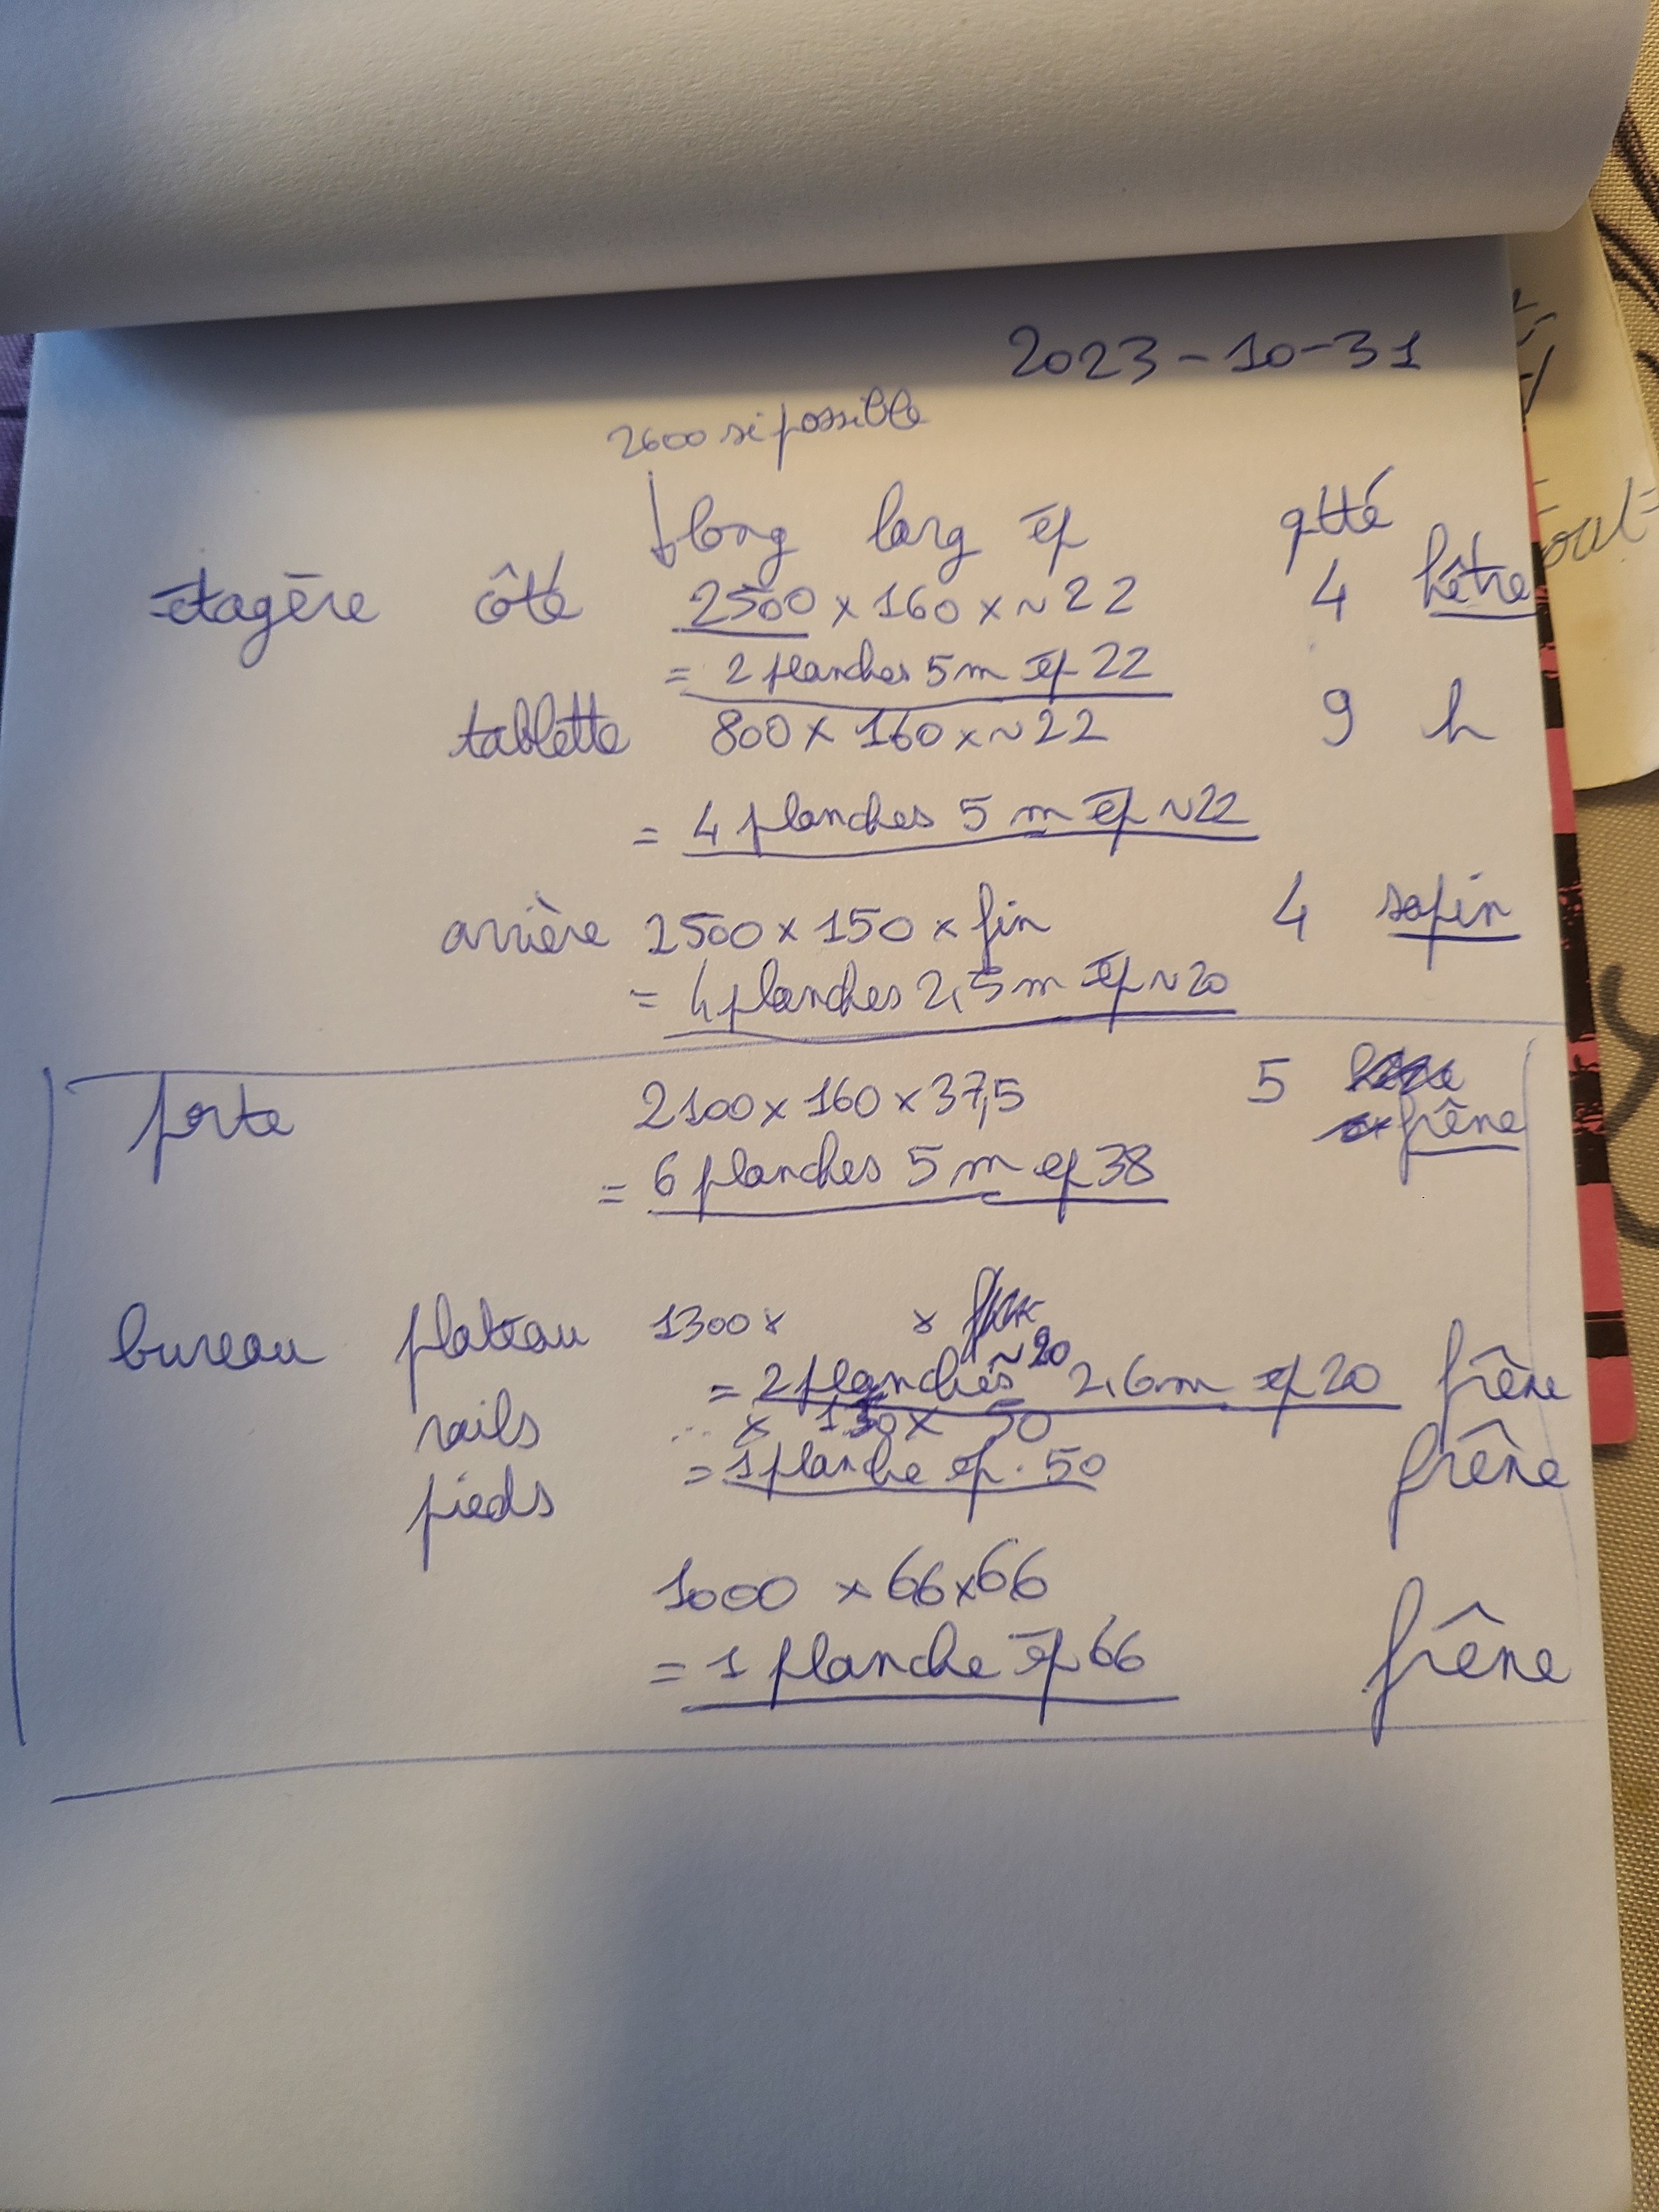 2023-10-31
2600 si possible
↓ long larg ép qtté
étagère côté 2500 x 160 x ~22 4 hêtre
= 2 planches 5 m ép 22
tablette 800 x 160 x ~22 9 h
= 4 planches 5 m ép ~22
arrière 2500 x 150 x fin 4 sapin
= 4 planches 2,5 m ép ~20
porte 2100 x 160 x 37,5 5
frêne
= 6 planches 5 m ep 38
bureau plateau 1300 x x
~20
= 2 planches 2,6 m ep 20 frêne
rails ... x 130 x 50
= 1 planche ep. 50 frêne
pieds
1000 x 66 x 66
= 1 planche ép 66 frêne